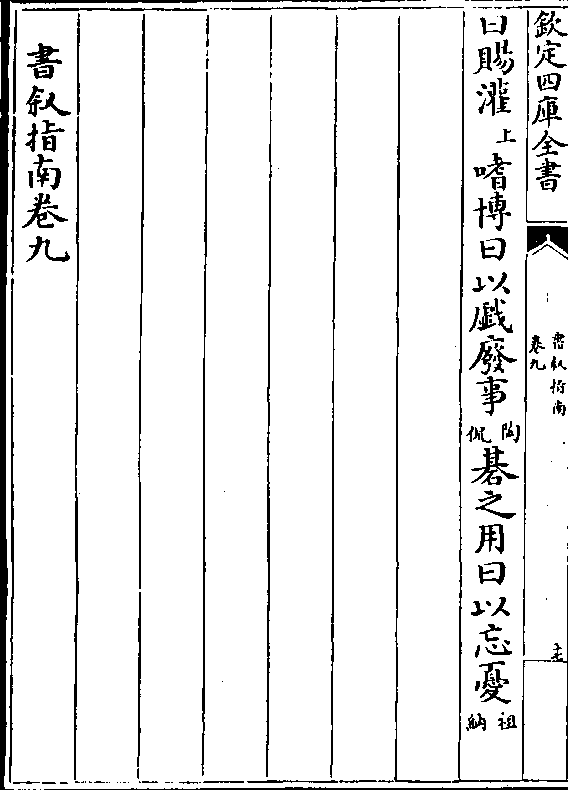 欽定四庫全書
書叙指南
卷九
曰賜灌上嗜博曰以戯廢事陶侃碁之用曰以忘憂祖納
書叙指南卷九